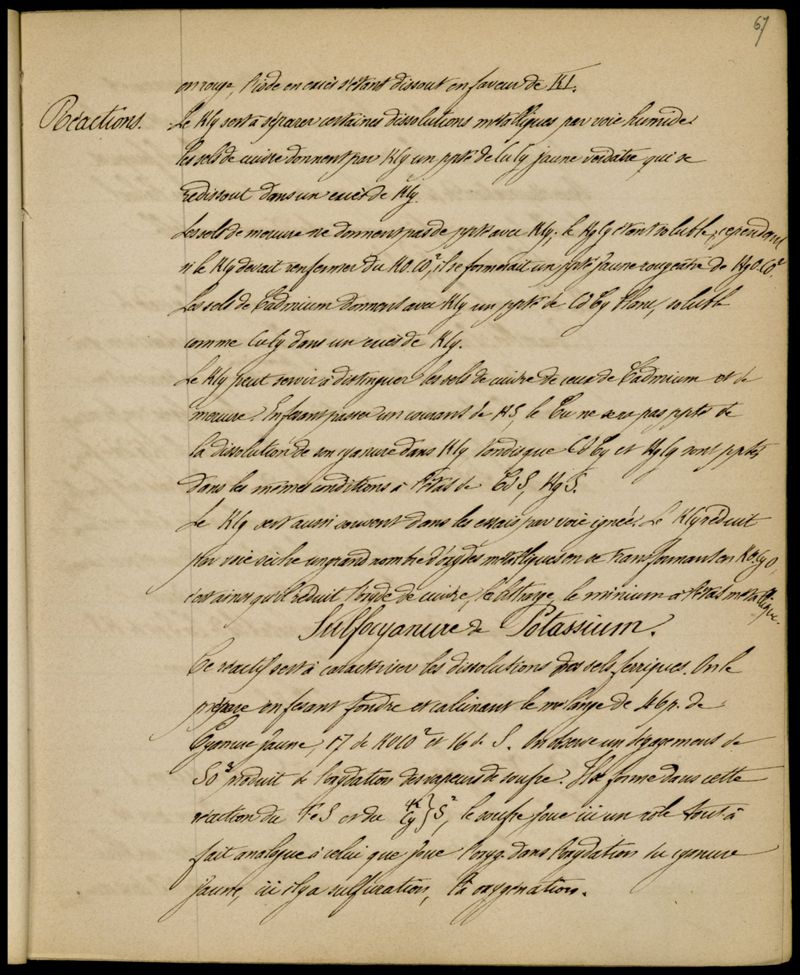 67
en rouge, l'iode en excès s'étant dissout en faveur de KI.
Réactions.
Le KCy sert à séparer certaines dissolutions métalliques par voie humide.
Les sels de cuivre donnent par KCy un ppté de CuCy jaune verdâtre qui se
redissout dans un excès de KCy.
Les sels de mercure ne donnent pas de ppté avec KCy, le HgCy étant soluble; cependant
si le KCy devait renfermer du KO.CO², il se formerait un ppté jaune rougeâtre de HgO.CO²
Les sels de Cadmium donnent avec KCy un ppté de CdCy blanc, soluble
comme CuCy dans un excès de KCy.
Le KCy peut servir à distinguer les sels de cuivre de ceux de Cadmium et de
mercure. En faisant passer un courant de HS, le Cu ne sera pas ppté de
la dissolution de son cyanure dans KCy tandis que CdCy et HgCy sont pptés
dans les mêmes conditions à l'état de CdS, HgS.
Le KCy sert aussi souvent dans les essais par voie ignée. Le KCy réduit
par voie sèche un grand nombre d'oxydes métalliques en se transformant en KO.CyO,
c'est ainsi qu'il réduit l'oxide de cuivre, la litharge, le minium à l'état métallique.
Sulfocyanure de Potassium.
Ce réactif sert à caractériser les dissolutions des sels ferriques. On le
prépare en faisant fondre et calcinant le mélange de 46 p. de
Cyanure jaune, 17 de KOCO² et 16 de S. On observe un dégagement de
SO² produit de l'oxydation des vapeurs de soufre. Il se forme dans cette
réaction du FeS et du K Cy}S², le soufre joue ici un role tout à
fait analogue à celui que joue l'oxyg. dans l'oxydation du cyanure
jaune, ici il y a sulfuration, là oxygénation.